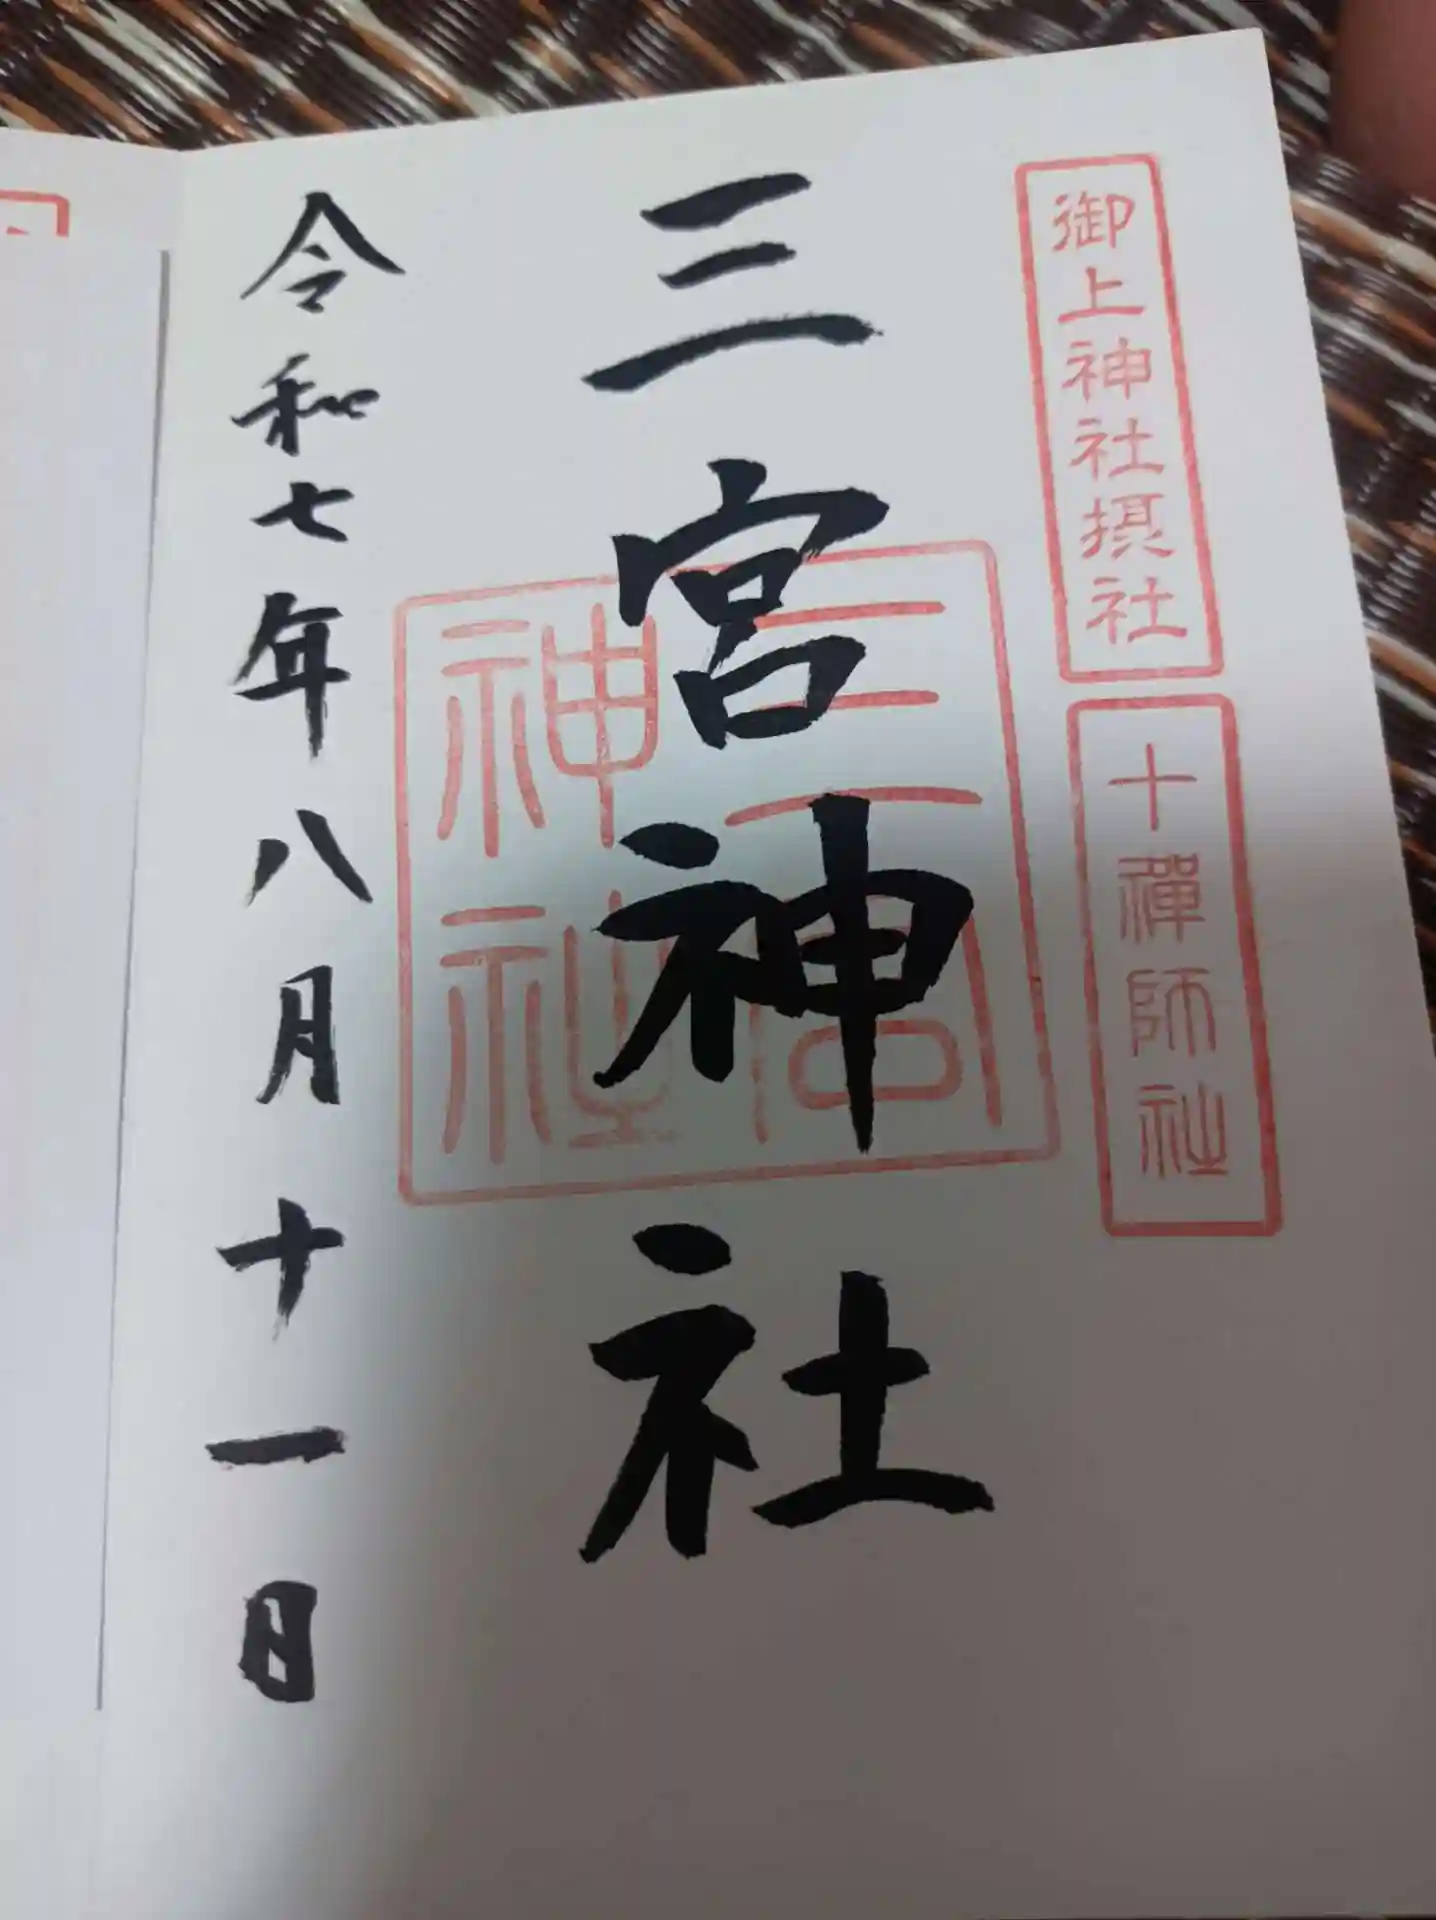 御上神社摂社
十禪師社
三宮神社
三宮
神社
令和七年八月十一日